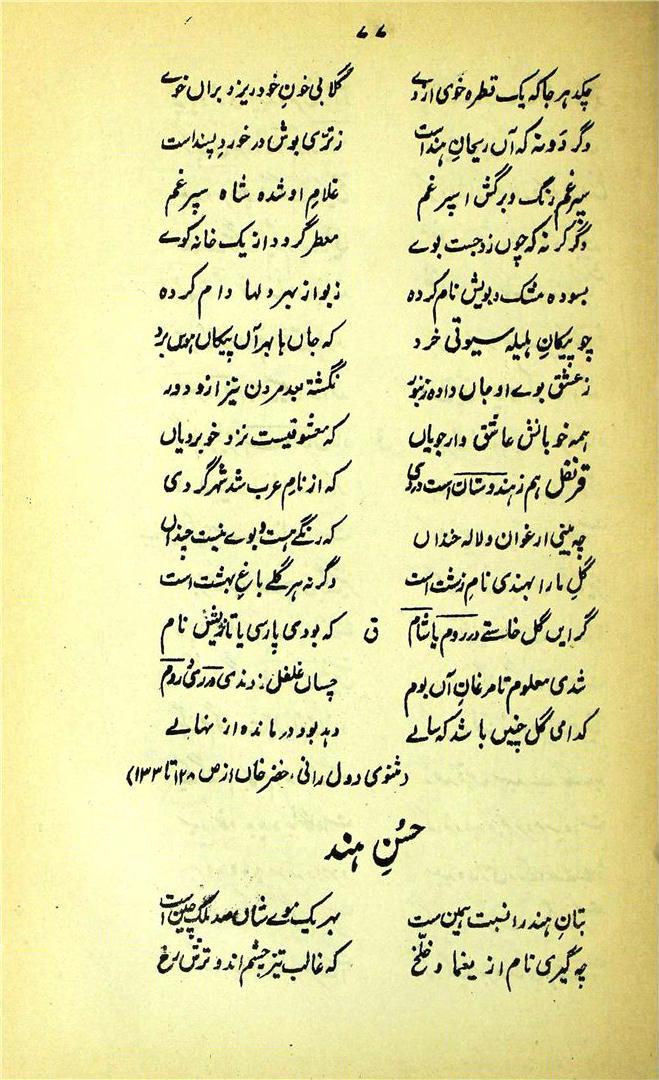 ۷۷
چکد ہر جا کہ یک قطرہ خوی از وے گلابی خونِ خود ریزد براں خوے
دگر دَونہ کہ آں ریحانِ ہند است ز تری بوش در خوردِ پسند است
سپرغم رنگ و برگش اسپرغم غلامِ او شدہ شاہ سپرغم
دگر کرنہ کہ چوں زد جست بوے معطر گردد از یک خانہ کوے
بسودہ مشک و بویش نام کردہ ز بو از بہر دلہا دام کردہ
چو پیکانِ ہلیلہ سیوتی خرد کہ جاں با بہر آں پیکاں ہوس برد
ز عشق بوے او جاں دادہ زنبور نگشتہ بعد مردن نیز ازو دور
ہمہ خوبانش عاشق وار جویاں کہ معشوقیست نزد خوبرویاں
قرنفل ہم ز ہندوستان است کہ از نامِ عرب شد شہر گردی
چہ بینی ارغوان و لالہ خنداں کہ رنگے ہست و بوے نیست چنداں
گلِ ما را بہندی نام زشت است دگرنہ ہر گلے باغِ بہشت است
گر ایں گل خاستے در روم یا شام ق کہ بودی پارسی یا تازیش نام
شدی معلوم تا مرغانِ آں بوم چساں غلغل زدندی در رَی و روم
کدامی گل چنیں باشد کہ سالے دہد بو دور ماندہ از نہالے
(مثنوی دول رانی، خضر خاں از ص ۱۲۸ تا ۱۳۳)
حُسنِ ہند
بتانِ ہند را نسبت ہمین ست بہر یک موے شاں صد ملک چین است
چہ گیری نام از یغما و خلّخ کہ غالب تیز چشم اند و ترش رخ